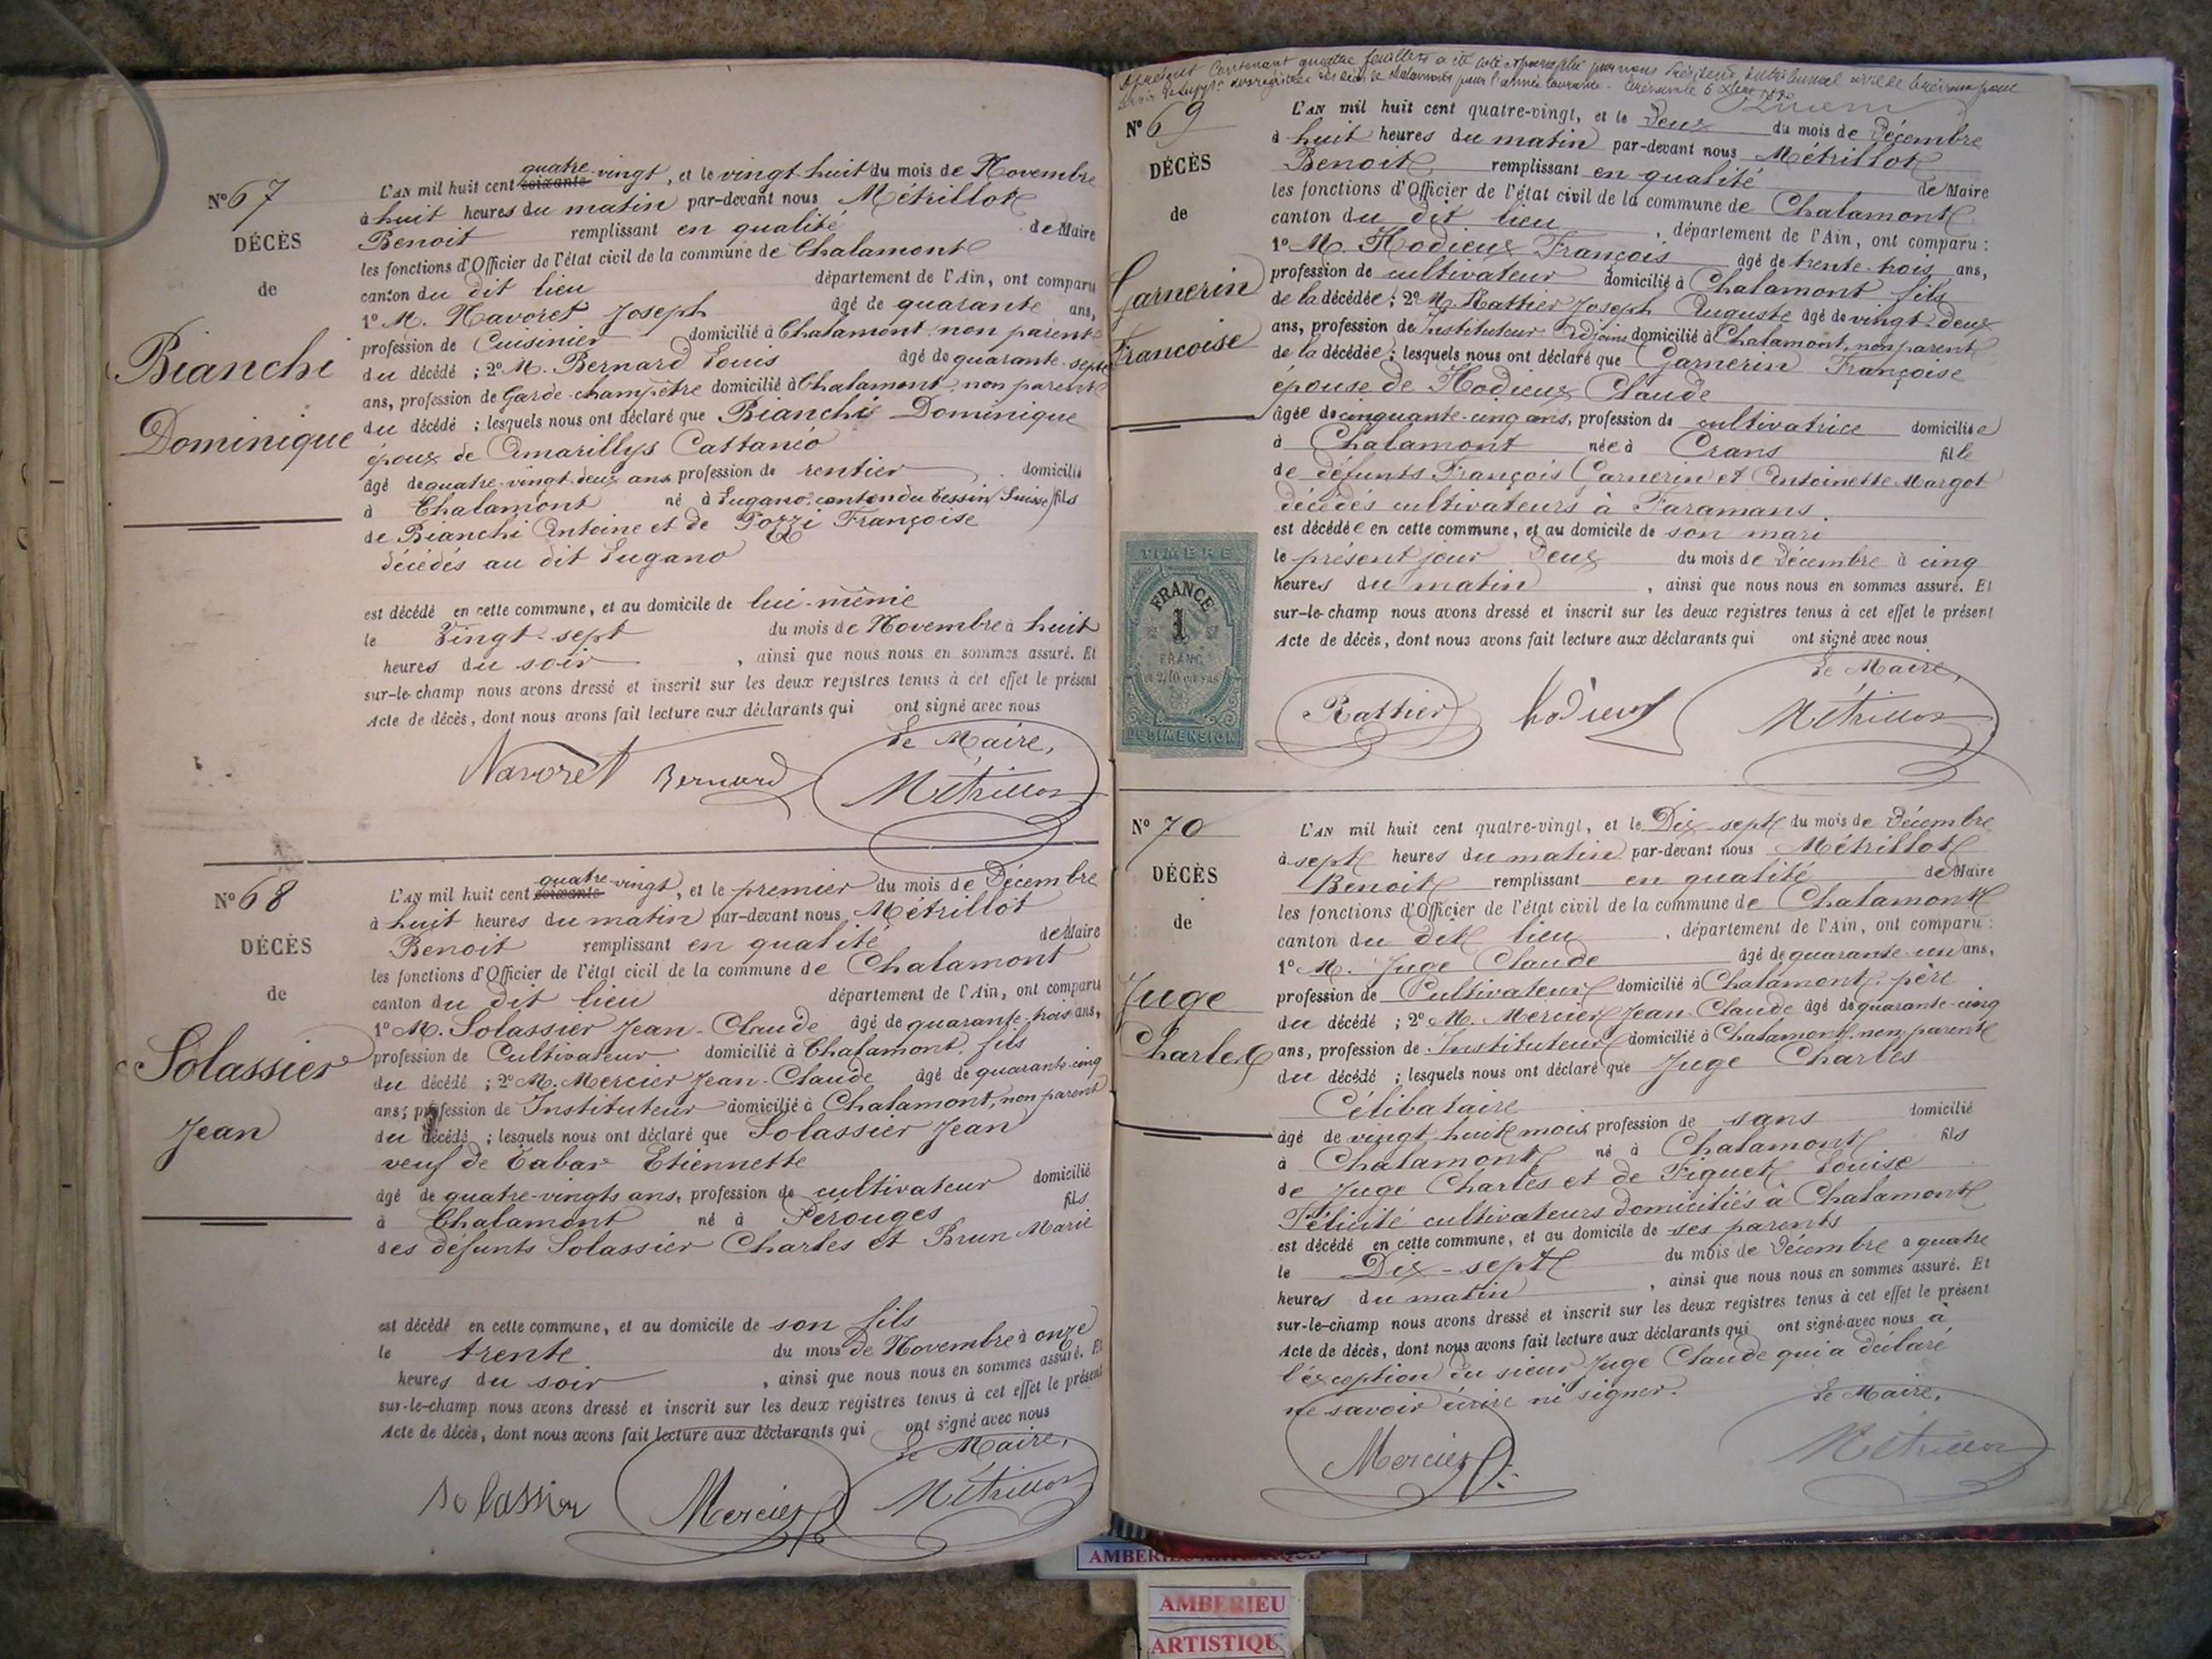 No 67
DÉCÈS
de
Bianchi
Dominique
L'AN mil huit cent soixante quatre-vingt, et le vingt huit du mois de Novembre
à huit heures du matin par-devant nous Métrillot
Benoit remplissant en qualité de Maire
les fonctions d'Officier de l'état civil de la commune de Chalamont
canton du dit lieu département de l'Ain, ont comparu
1º M. Navoret Joseph âgé de quarante ans,
profession de Cuisinier domicilié à Chalamont non parent
du décédé ; 2º M. Bernard Louis âgé de quarante-sept
ans, profession de Garde-champêtre domicilié à Chalamont, non parent
du décédé ; lesquels nous ont déclaré que Bianchi Dominique
époux de Amarillys Cattanéo
âgé de quatre-vingt-deux ans profession de rentier domicilié
à Chalamont né à Lugano canton du Tessin Suisse fils
de Bianchi Antoine et de Pozzi Françoise
décédés au dit Lugano
est décédé en cette commune, et au domicile de lui-même
le Vingt-sept du mois de Novembre à huit
heures du soir , ainsi que nous nous en sommes assuré. Et
sur-le-champ nous avons dressé et inscrit sur les deux registres tenus à cet effet le présent
Acte de décès, dont nous avons fait lecture aux déclarants qui ont signé avec nous
Le Maire,
Navoret Bernard Métrillot
No 68
DÉCÈS
de
Solassier
Jean
L'AN mil huit cent soixante quatre-vingt, et le premier du mois de Décembre
à huit heures du matin par-devant nous Métrillot
Benoit remplissant en qualité de Maire
les fonctions d'Officier de l'état civil de la commune de Chalamont
canton du dit lieu département de l'Ain, ont comparu
1º M. Solassier Jean-Claude âgé de quarante-trois ans,
profession de Cultivateur domicilié à Chalamont, fils
du décédé ; 2º M. Mercier Jean-Claude âgé de quarante-cinq
ans, profession de Instituteur domicilié à Chalamont, non parent
du décédé ; lesquels nous ont déclaré que Solassier Jean
veuf de Tabar Etiennette
âgé de quatre-vingts ans, profession de cultivateur domicilié
à Chalamont né à Pérouges fils
des défunts Solassier Charles et Brun Marie
est décédé en cette commune, et au domicile de son fils
le trente du mois de Novembre à onze
heures du soir , ainsi que nous nous en sommes assuré. Et
sur-le-champ nous avons dressé et inscrit sur les deux registres tenus à cet effet le présent
Acte de décès, dont nous avons fait lecture aux déclarants qui ont signé avec nous
Le Maire,
Solassier Mercier Métrillot
contenant quatre feuillets a été coté et paraphé par nous Président du tribunal civil de
pour l'année courante
No 69
DÉCÈS
de
Garnerin
Françoise
L'AN mil huit cent quatre-vingt, et le Deux du mois de Décembre
à huit heures du matin par-devant nous Métrillot
Benoit remplissant en qualité de Maire
les fonctions d'Officier de l'état civil de la commune de Chalamont
canton du dit lieu , département de l'Ain, ont comparu :
1º M. Hodieux François âgé de trente-trois ans,
profession de cultivateur domicilié à Chalamont fils
de la décédée ; 2º M. Rathier Joseph Auguste âgé de vingt-deux
ans, profession de Instituteur Adjoint domicilié à Chalamont, non parent
de la décédée ; lesquels nous ont déclaré que Garnerin Françoise
épouse de Hodieux Claude
âgée de cinquante-cinq ans, profession de cultivatrice domiciliée
à Chalamont née à Crans fille
de défunts François Garnerin et Antoinette Margot
décédés cultivateurs à Faramans.
est décédée en cette commune, et au domicile de son mari
le présent jour Deux du mois de Décembre à cinq
heures du matin , ainsi que nous nous en sommes assuré. Et
sur-le-champ nous avons dressé et inscrit sur les deux registres tenus à cet effet le présent
Acte de décès, dont nous avons fait lecture aux déclarants qui ont signé avec nous
Le Maire,
Rathier hodieux Métrillot
TIMBRE
FRANCE
1
FRANC
et 2/10 en sus
DE DIMENSION
No 70
DÉCÈS
de
Juge
Charles
L'AN mil huit cent quatre-vingt, et le Dix-sept du mois de Décembre
à sept heures du matin par-devant nous Métrillot
Benoit remplissant en qualité de Maire
les fonctions d'Officier de l'état civil de la commune de Chalamont
canton du dit lieu , département de l'Ain, ont comparu :
1º M. Juge Claude âgé de quarante-un ans,
profession de Cultivateur domicilié à Chalamont, père
du décédé ; 2º M. Mercier Jean-Claude âgé de quarante-cinq
ans, profession de Instituteur domicilié à Chalamont, non parent
du décédé ; lesquels nous ont déclaré que Juge Charles
Célibataire
âgé de vingt huit mois profession de sans domicilié
à Chalamont né à Chalamont fils
de Juge Charles et de Figuet Louise
Félicité cultivateurs domiciliés à Chalamont
est décédé en cette commune, et au domicile de ses parents
le Dix-sept du mois de Décembre a quatre
heures du matin , ainsi que nous nous en sommes assuré. Et
sur-le-champ nous avons dressé et inscrit sur les deux registres tenus à cet effet le présent
Acte de décès, dont nous avons fait lecture aux déclarants qui ont signé avec nous à
l'exception du sieur Juge Claude qui a déclaré
ne savoir écrire ni signer.
Le Maire,
Mercier Métrillot
AMBERIEU ARTISTIQUE
AMBERIEU
ARTISTIQU